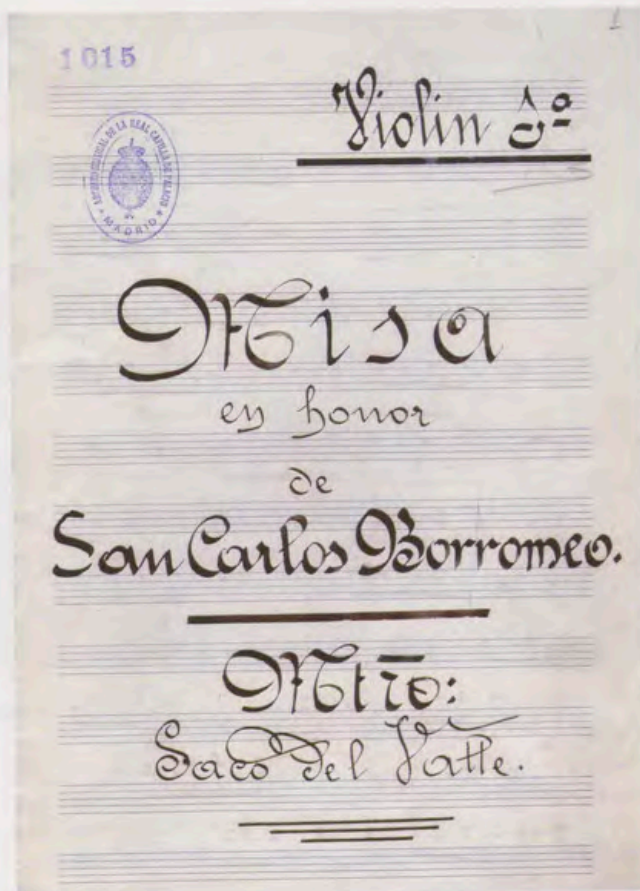 1
1015
Violin 1º
ARCHIVO MUSICAL DE LA REAL CAPILLA DE PALACIO
MADRID
Misa
en honor
de
San Carlos Borromeo.
Mtrō:
Saco del Valle.